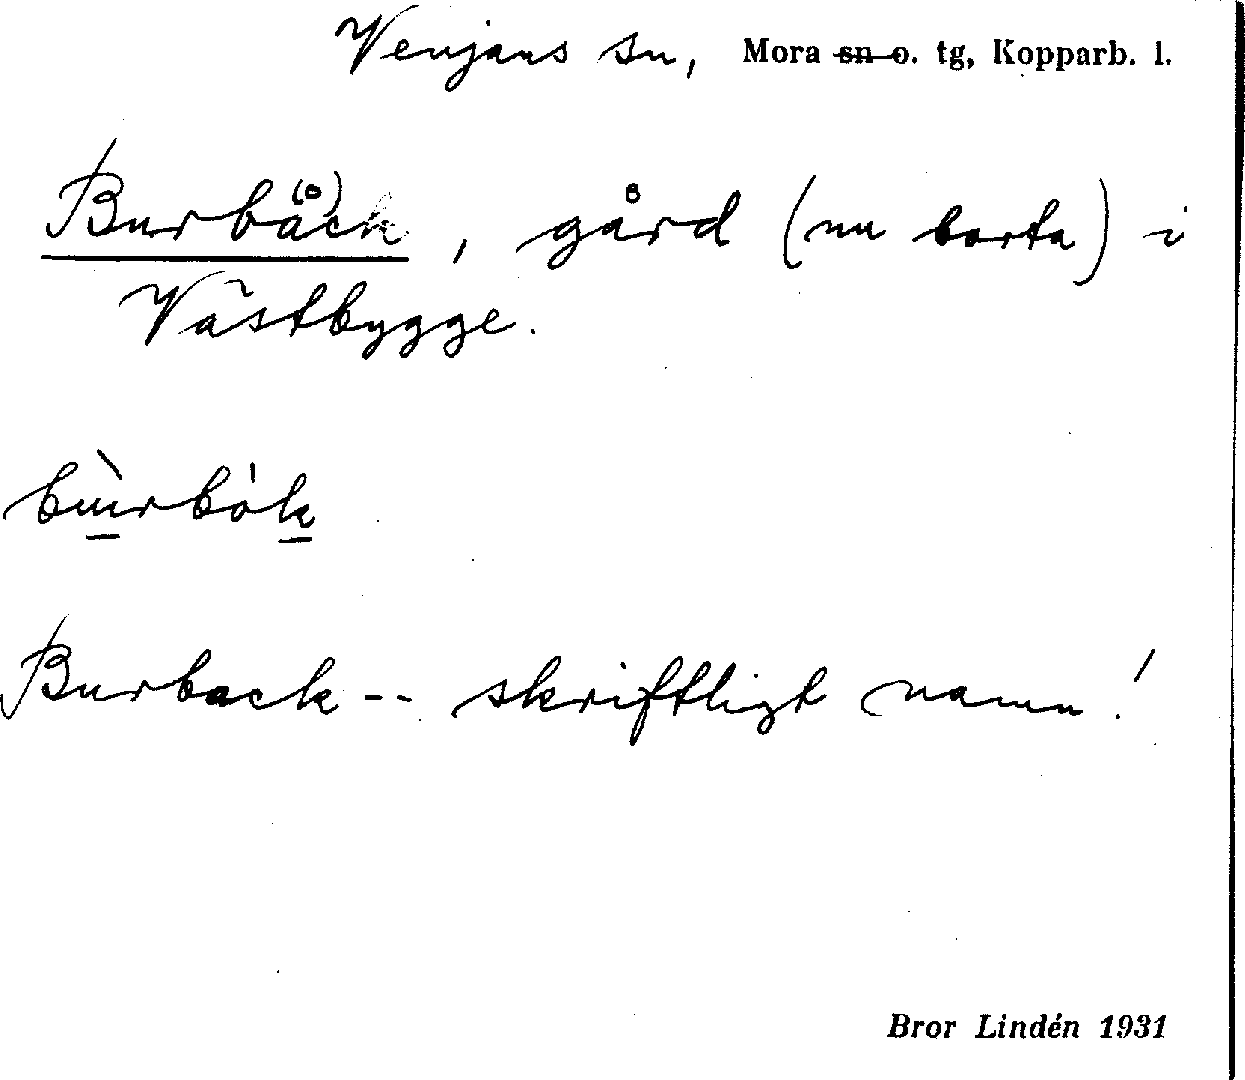 Venjans sn, Mora sn o. tg, Kopparb. l.
Burb(å)ck, gård (nu borta) i
Västbygge.
bùrbók
Burback -- skriftligt namn!
Bror Lindén 1931